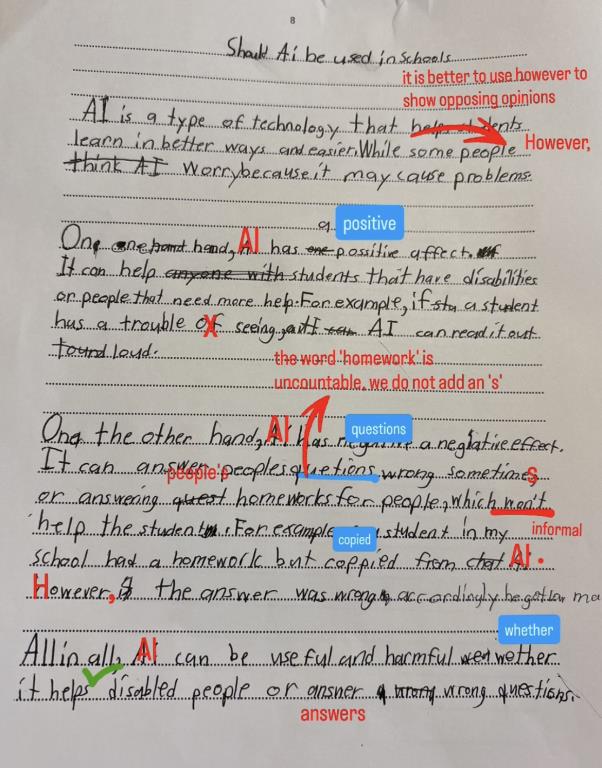 8
Should Ai be used in Schools
it is better to use however to
show opposing opinions
AI is a type of technology that helps students
learn in better ways and easier. While some people However,
think AI worry because it may cause problems.
a positive
One one hand hand, AI has one possitive affect.
It can help anyone with students that have disabilities
or people that need more help. For example, if stu a student
has a trouble of X seeing, AI can read it out
loud.
the word 'homework' is
uncountable. we do not add an 's'
questions
Ona the other hand, AI has negative a neglative effect.
It can answer peoples people's quetions wrong sometimes
or answering quest homeworks for people, which won't
help the student. For example a student in my informal
copied
school had a homework but coppied from chat AI.
However, the answer was wrong accordingly he got low ma
whether
All in all, AI can be useful and harmful wether
it helps disabled people or answer wrong wrong questions.
answers